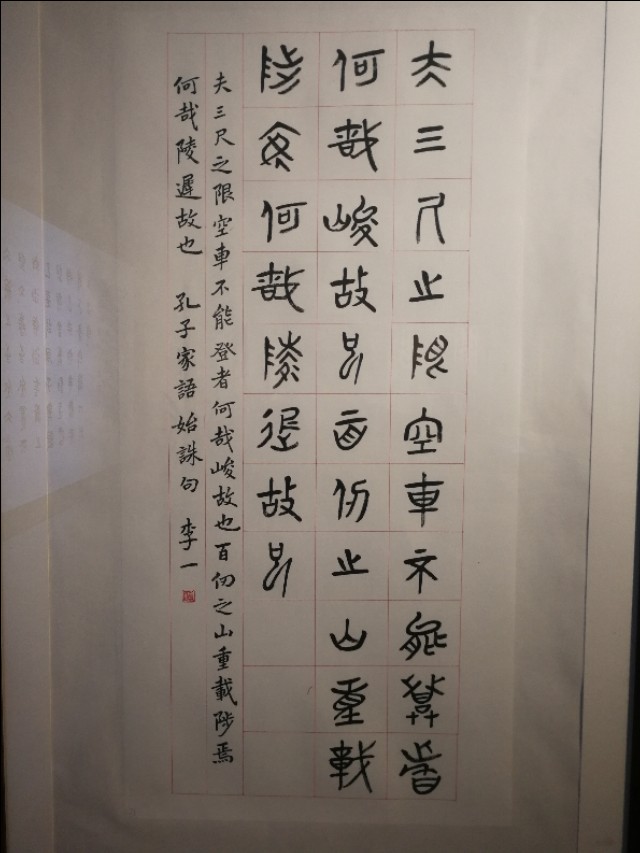 夫三尺之限空車不能登者
何哉峻故也百仞之山重載
陟焉何哉陵遲故也
夫三尺之限空車不能登者何哉峻故也百仞之山重載陟焉
何哉陵遲故也 孔子家語始誅句 李一